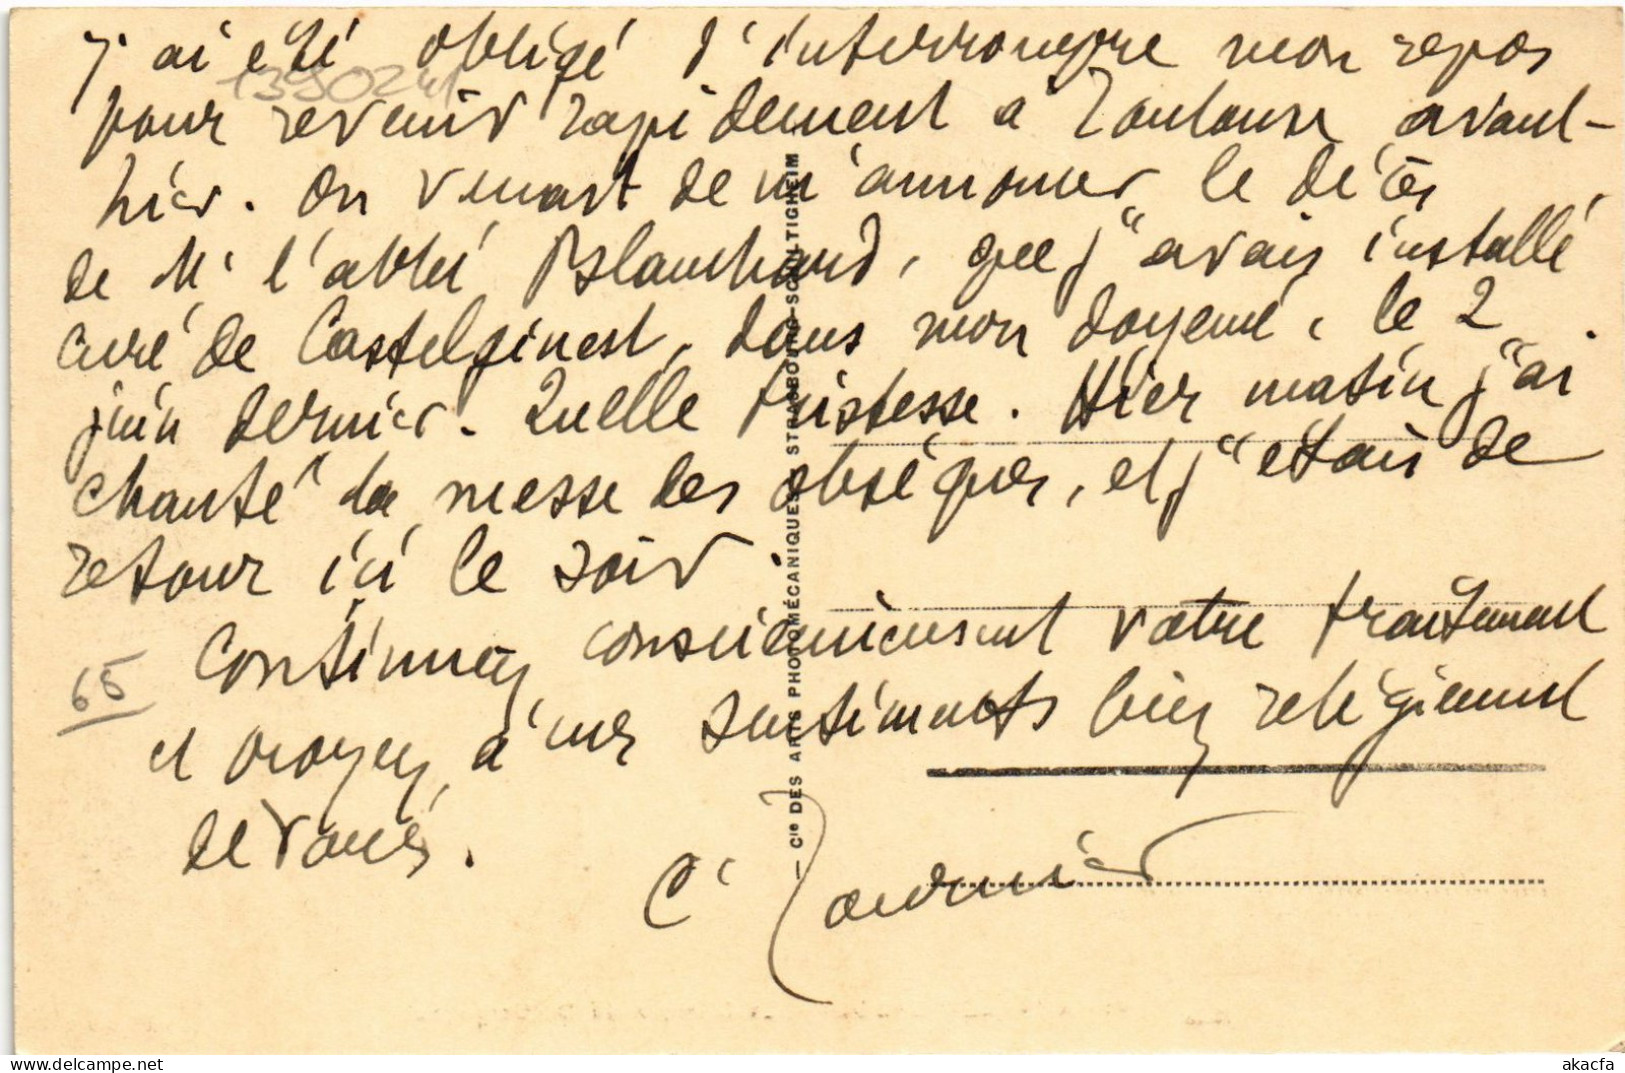 J'ai été obligé d'interrompre mon repos
pour revenir rapidement à Toulouse avant-
hier. On venait de m'annoncer le décès
de M. l'abbé Blanchard, que j'avais installé
curé de Castelginest, dans mon doyenné, le 2
juin dernier. Quelle tristesse. Hier matin j'ai
chanté la messe des obsèques, et j'étais de
retour ici le soir.
Continuez consciencieusement votre traitement
et croyez à mes sentiments bien religieusement
dévoués.
C. Tournier
65
1390241
— Cie DES ARTS PHOTOMÉCANIQUES, STRASBOURG-SCHILTIGHEIM
akacfa